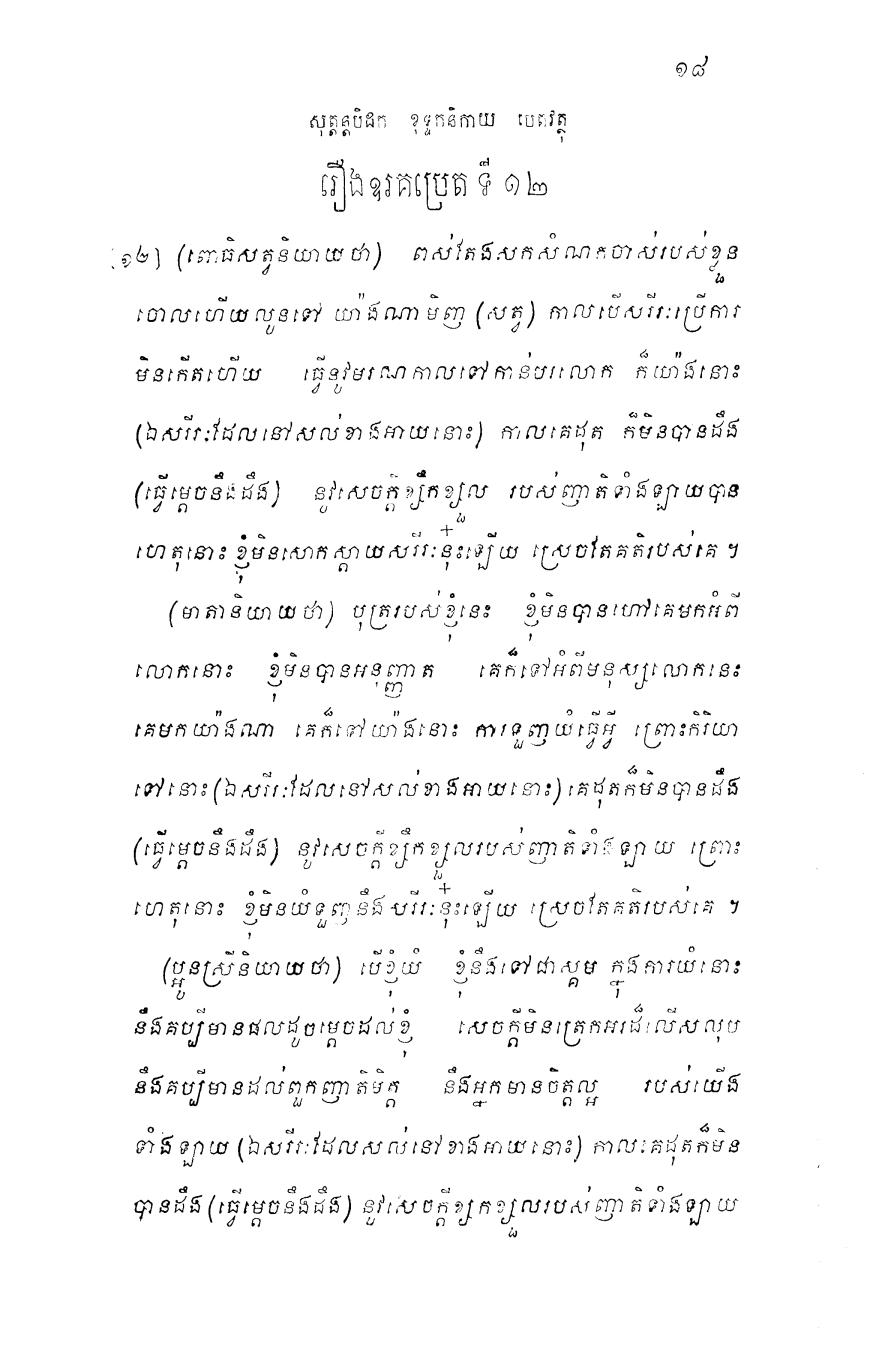 ១៨
សុត្តន្តបិដក ខុទ្ទកនិកាយ បេតវត្ថុ
រឿងឧរគប្រេត ទី ១២
(១២) (ពោធិសត្វនិយាយថា) ពស់តែងសកសំណកចាស់របស់ខ្លួន
ចោលហើយលូនទៅ យ៉ាងណាមិញ (សត្វ) កាលបើសរីរៈប្រើការ
មិនកើតហើយ ធ្វើនូវមរណកាលទៅកាន់បរលោក ក៏យ៉ាងនោះ
(ឯសរីរៈដែលនៅសល់ខាងអាយនោះ) កាលគេដុត ក៏មិនបានដឹង
(ធ្វើម្តេចនឹងដឹង) នូវសេចក្តីខ្សឹកខ្សួល របស់ញាតិទាំងឡាយបាន
ហេតុនោះ ខ្ញុំមិនសោកស្តាយសរីរៈនុ៎ះឡើយ ស្រេចតែគតិរបស់គេ ។
(មាតានិយាយថា) បុត្ររបស់ខ្ញុំនេះ ខ្ញុំមិនបានហៅគេមកអំពី
លោកនោះ ខ្ញុំមិនបានអនុញ្ញាត គេក៏ទៅអំពីមនុស្សលោកនេះ
គេមកយ៉ាងណា គេក៏ទៅយ៉ាងនោះ ការទួញយំធ្វើអ្វី ព្រោះកិរិយា
ទៅនោះ (ឯសរីរៈដែលនៅសល់ខាងអាយនោះ) គេដុតក៏មិនបានដឹង
(ធ្វើម្តេចនឹងដឹង) នូវសេចក្តីខ្សឹកខ្សួលរបស់ញាតិទាំងឡាយ ព្រោះ
ហេតុនោះ ខ្ញុំមិនយំទួញនឹងសរីរៈនុ៎ះឡើយ ស្រេចតែគតិរបស់គេ ។
(ប្អូនស្រីនិយាយថា) បើខ្ញុំយំ ខ្ញុំនឹងទៅជាស្គម ក្នុងការយំនោះ
នឹងគប្បីមានផលដូចម្តេចដល់ខ្ញុំ សេចក្តីមិនត្រេកអរដ៏លើសលុប
នឹងគប្បីមានដល់ពួកញាតិមិត្ត នឹងអ្នកមានចិត្តល្អ របស់យើង
ទាំងឡាយ (ឯសរីរៈដែលសល់នៅខាងអាយនោះ) កាលគេដុតក៏មិន
បានដឹង (ធ្វើម្តេចនឹងដឹង) នូវសេចក្តីខ្សឹកខ្សួលរបស់ញាតិទាំងឡាយ